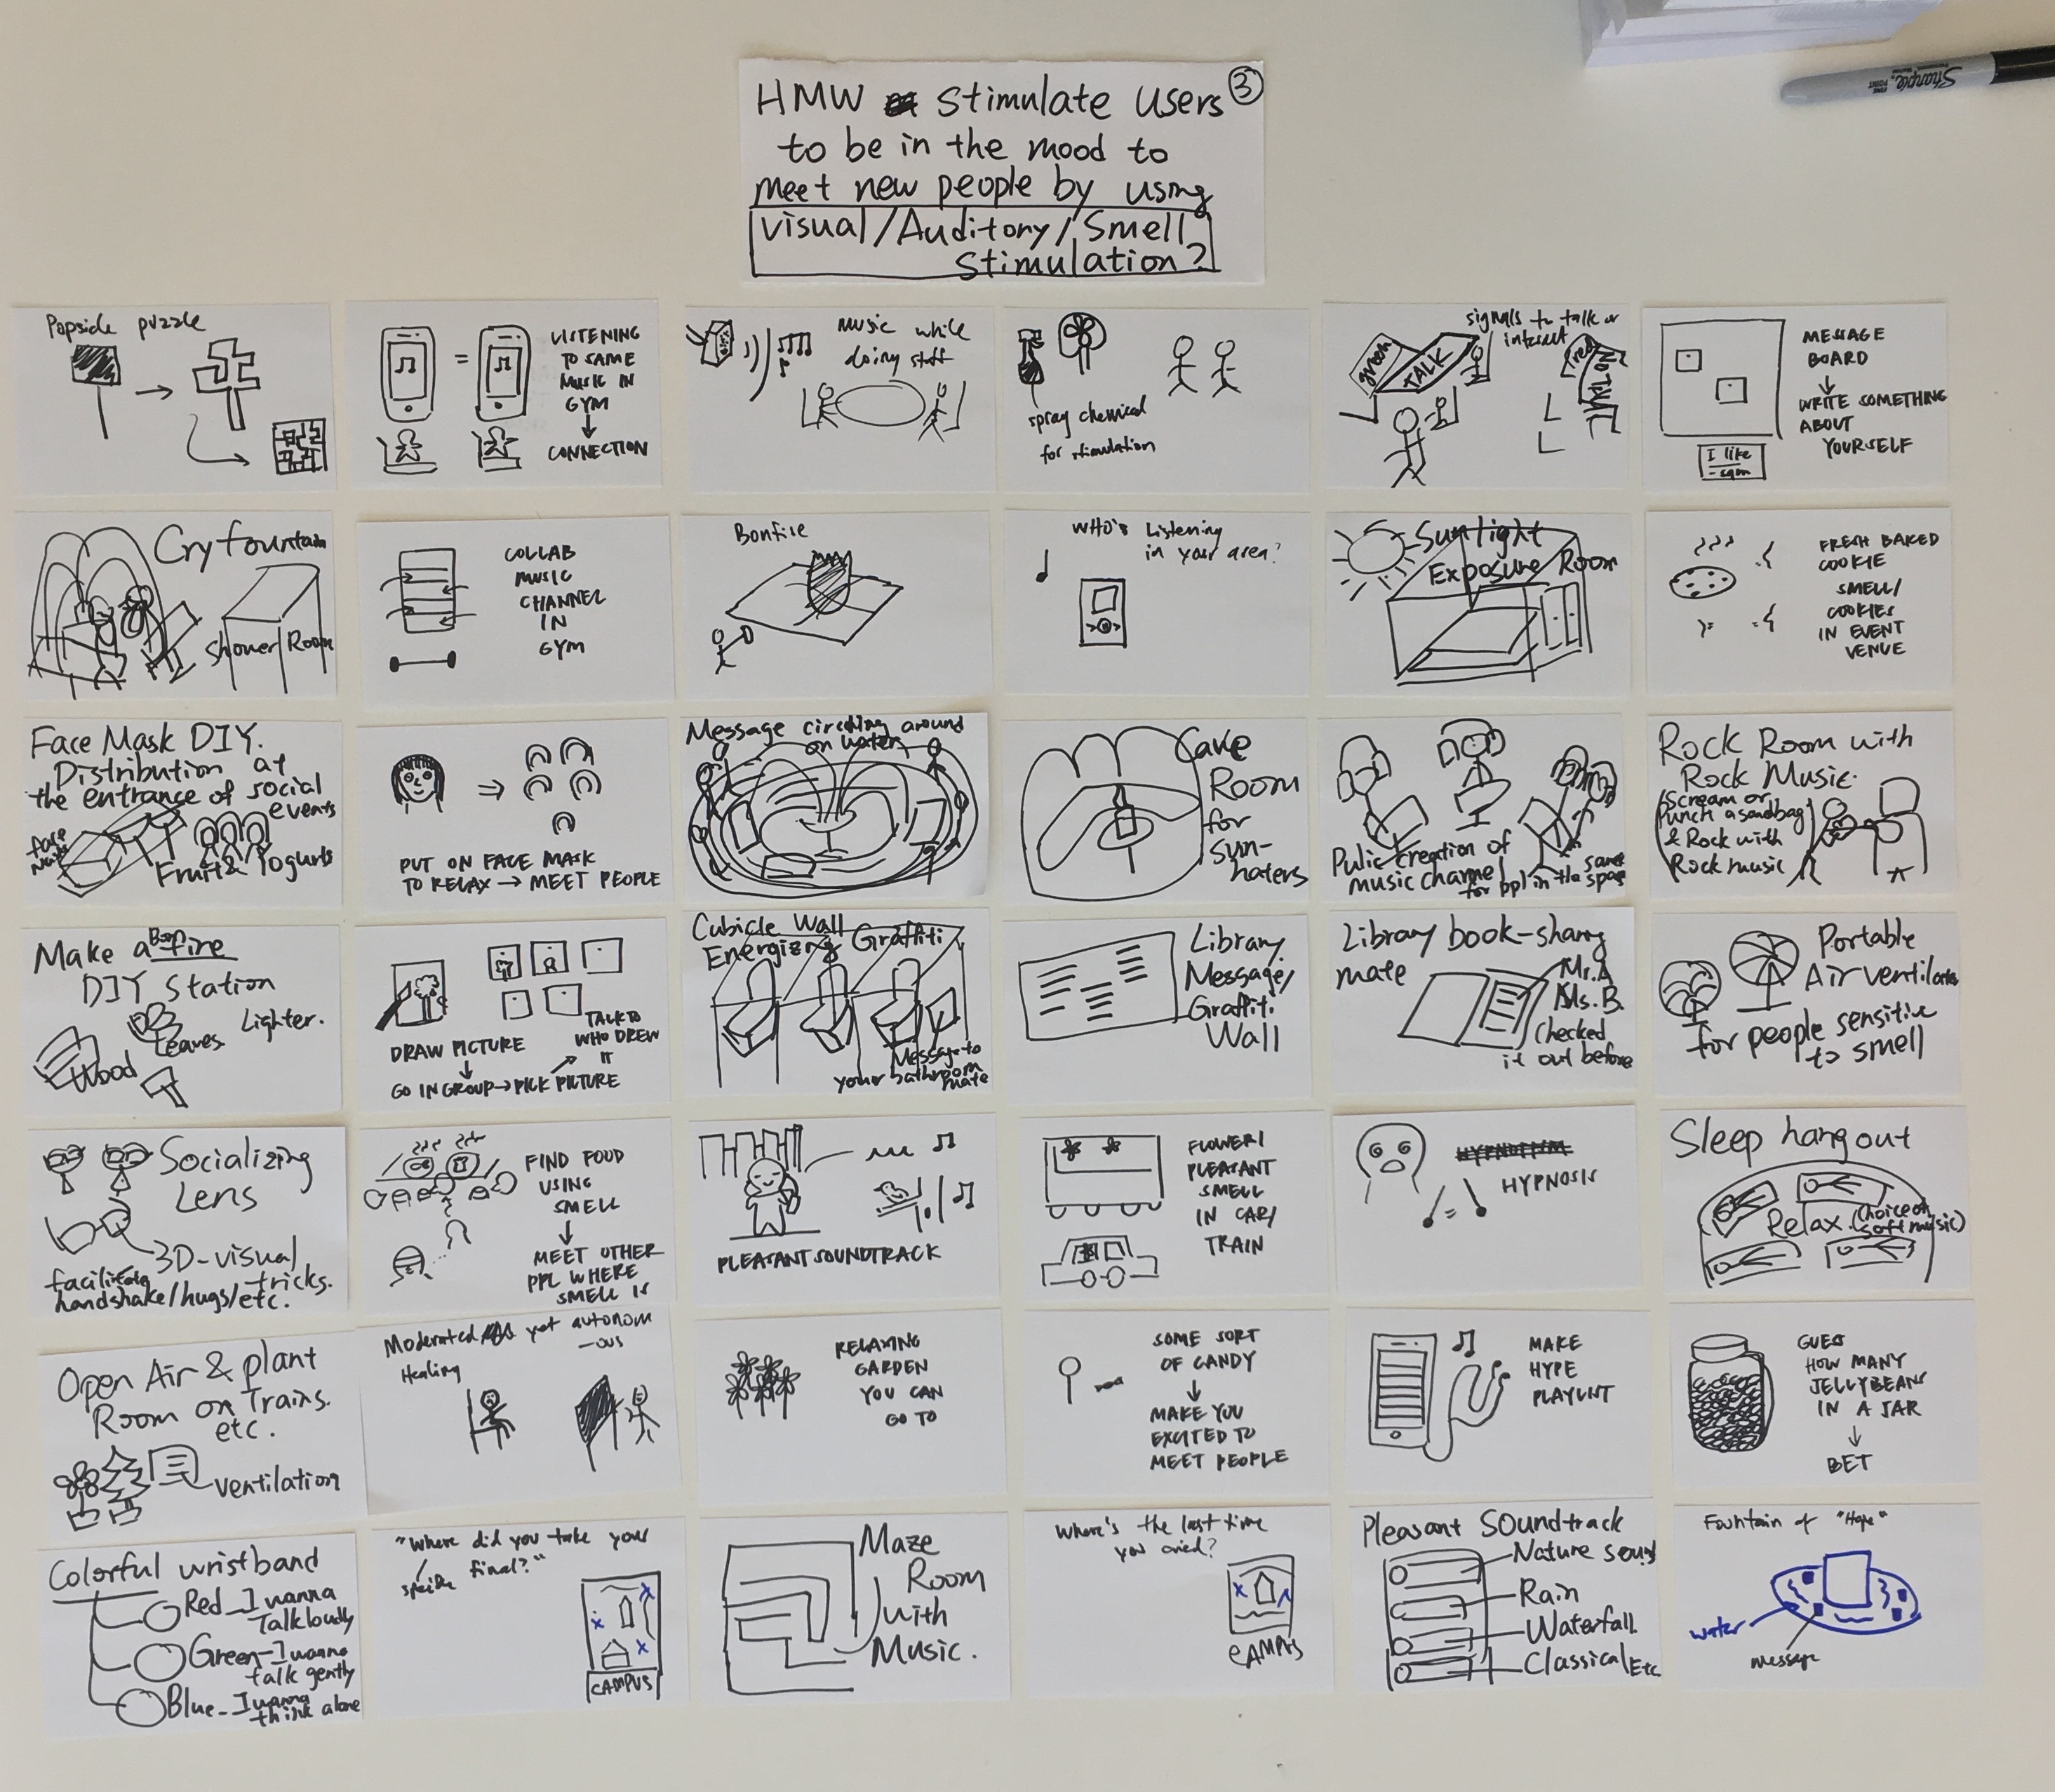 HMW stimulate users ③
to be in the mood to
meet new people by using
visual/Auditory/Smell
Stimulation?
Sharpie
FINE POINT
Papsicle puzzle
LISTENING
TO SAME
MUSIC IN
GYM
↓
CONNECTION
music while
doing stuff
spray chemical
for stimulation
signals to talk or
interact
green
TALK
red
MESSAGE
BOARD
↓
WRITE SOMETHING
ABOUT
YOURSELF
I like
Cry fountain
Shower Room
COLLAB
MUSIC
CHANNEL
IN
GYM
Bonfire
WHO's Listening
in your area?
Sunlight
Exposure Room
FRESH BAKED
COOKIE
SMELL/
COOKIES
IN EVENT
VENUE
Face Mask DIY.
Distribution at
the entrance of social
events
face
Fruit & Yogurts
PUT ON FACE MASK
TO RELAX → MEET PEOPLE
Message circling around
on water
Cave
Room
for
sun-
haters
Pulic creation of
music channel
for ppl in the same
space
Rock Room with
Rock Music.
Scream or
Punch a sandbag
& Rock with
Rock music
Make a Bonfire
DIY Station
Lighter.
Leaves
Wood
DRAW PICTURE
↓
GO IN GROUP → PICK PICTURE
TALK TO
WHO DREW
IT
Cubicle Wall
Energizing Graffiti
Message to
your bathroom
mate
Library
Message/
Graffiti
Wall
Library book-sharing
mate
Mr.A
Ms.B.
Checked
it out before
Portable
Air ventilator
for people sensitive
to smell
Socializing
Lens
3D-visual
tricks.
facilitate
handshake/hugs/etc.
FIND FOOD
USING
SMELL
↓
MEET OTHER
PPL WHERE
SMELL IS
PLEASANT SOUNDTRACK
FLOWER/
PLEASANT
SMELL
IN CAR/
TRAIN
HYPNOSIS
Sleep hangout
Relax. (Choice of
soft music)
Open Air & plant
Room on Trains.
etc.
ventilation
Moderated yet autonom
-ous
Healing
RELAXING
GARDEN
YOU CAN
GO TO
SOME SORT
OF CANDY
↓
MAKE YOU
EXCITED TO
MEET PEOPLE
MAKE
HYPE
PLAYLIST
GUESS
HOW MANY
JELLYBEANS
IN A JAR
↓
BET
Colorful wristband
Red_I wanna
Talk loudly
Green-I wanna
talk gently
Blue_I wanna
think alone
"Where did you take your
final?"
CAMPUS
Maze
Room
with
Music.
Where's the last time
you cried?
CAMPUS
Pleasant Soundtrack
Nature sound
Rain
Waterfall.
Classical Etc.
Fountain of "Hope"
water
message